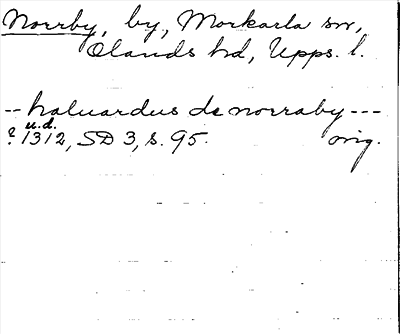 Norrby, by, Morkarla sn,
Olands hd, Upps. l.
-- haluardus de norraby ---
u.d.
? 1312, SD 3, s. 95. orig.